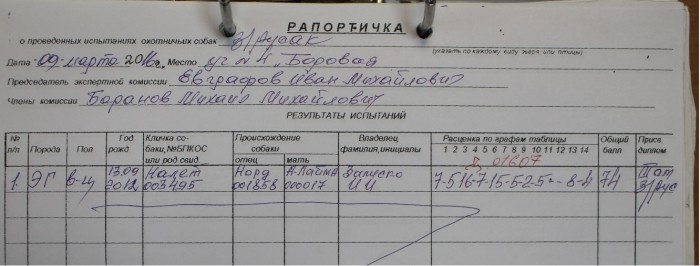 РАПОРТИЧКА
о проведенных испытаниях охотничьих собак з/русак
(указать по каждому виду зверя или птицы)
Дата 09. марта 2016г. Место уч N 4, Боровая
Председатель экспертной комиссии Евграфов Иван Михайлович
Члены комиссии Баранов Михаил Михайлович
РЕЗУЛЬТАТЫ ИСПЫТАНИЙ
№ п/п Порода Пол Год рожд Кличка собаки, №ВПКОС или род.свид. Происхождение собаки отец мать Владелец фамилия, инициалы Расценка по графам таблицы 1 2 3 4 5 6 7 8 9 10 11 12 13 14 Общий балл Присв. диплом
Д 01607
1. ЭГ в-ц 13.09 2012 Налет 003495 Норд 001858 Н-Лайма 000017 И.И 7-5 16-7-15-5-2-5=-8-4 74 з/рус